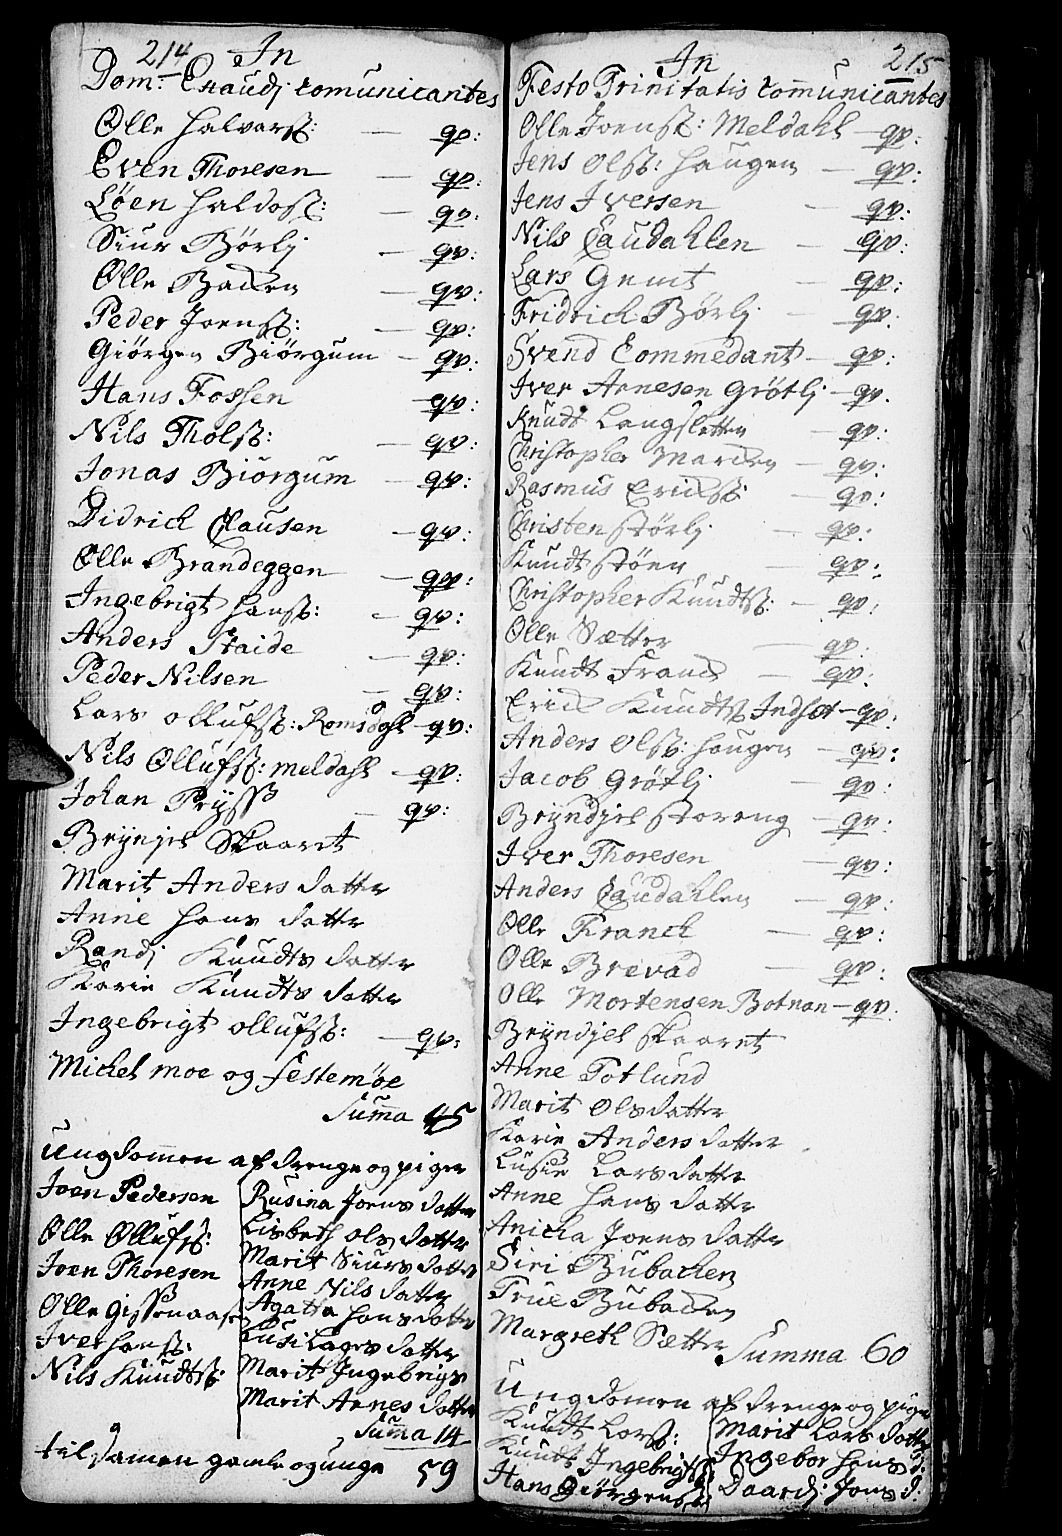 214 In
Dom: Exaudj Comunicantes
Olle Halvorß: — qv:
Even Thoresen — qv:
Löen Haldoß: — qv:
Siur Börlj — qv:
Olle Backen — qv:
Peder Joenß: — qv:
Giörgen Biörgum — qv:
Hans Fossen — qv:
Nils Tholß: — qv:
Jonas Biörgum — qv:
Didrich Clausen — qv:
Olle Brandeggen — qv:
Ingebrigt Hanß: — qv:
Anders Staide — qv:
Peder Nilsen — qv:
Lars Ollufß: Romsdahl — qv:
Nils Ollufß: Meldahl — qv:
Johan Pryss — qv:
Brynjel Skaaret
Marit Anders datter
Anne Hans datter
Randj Knudts datter
Karie Knudts datter
Ingebrigt Ollufß: — qv:
Michel moe og Festemöe
Suma 45
Ungdommen af drenge og piger
Joen Pedersen
Olle Ollufß:
Joen Thoresen
Olle Gissenaas
Iver Hanß:
Nils Knudtß:
Rusina Joens datter
Lisbeth Ols datter
Marit Siurs datter
Anne Nils datter
Agatta Hans datter
Lusi Lages datter
Marit Ingebrigs
Marit Arnes datter
Suma 14
tilsamen gamle og unge 59
In 215
Festo Trinitatis Comunicantes
Olle Joenß: Meldahl — qv:
Jens Olß: Haugen — qv:
Jens Iversen — qv:
Nils Caudahlen — qv:
Lars Gent — qv:
Fridrich Börlj — qv:
Svend Commedant — qv:
Iver Arnesen Grötlj — qv.
Knudt Langsletten — qv:
Christopher Marcken — qv:
Rasmus Erichß: — qv:
Christen Störlj — qv:
Knudt Stöen — qv:
Christopher Knudtß: — qv:
Olle Sætter — qv
Knudt Franck — qv:
Erich Knudtß Indset — qv:
Anders Olß: Haugen — qv:
Jacob Grötlj — qv:
Bryndjel Storeng — qv:
Iver Thoresen — qv:
Anders Caudahlen — qv:
Olle Kranck — qv:
Olle Brevad — qv:
Olle Mortensen Botnan — qv.
Bryndjel Skaaret
Anne Totlund
Marit Olsdatter
Karie Anders datter
Lusie Lars datter
Anne Hans datter
Anicha Joens datter
Siri Bubacken
True Bubacken
Margreth Sætter
Summa 60
Ungdomen af drenge og piger
Knudt Larß:
Knudt Ingebrigtß
Hans Giörgensß
Marit Lars datter
Ingebor Hans d:
Daardj: Jons d: